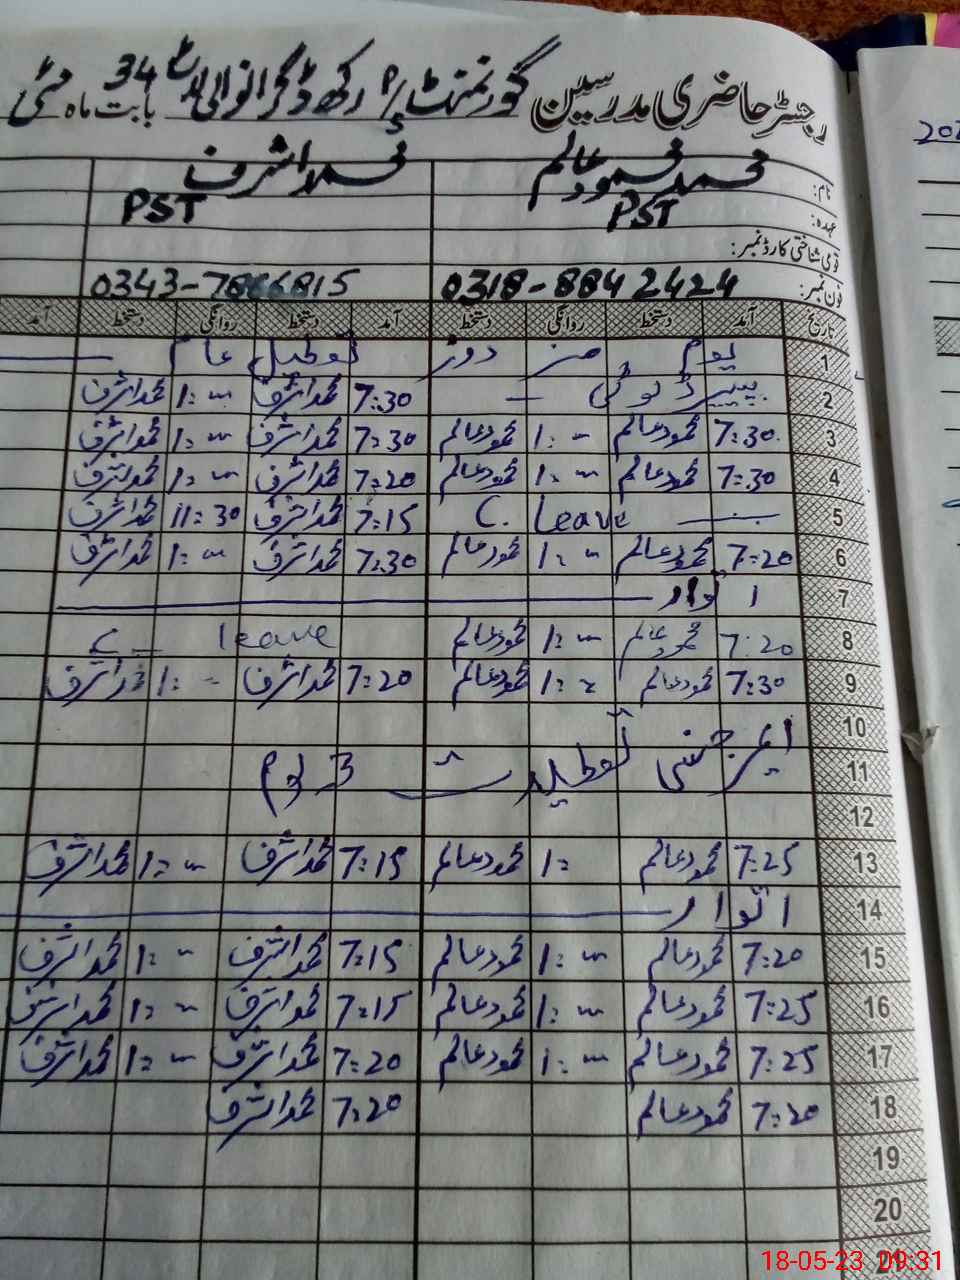 رجسٹر حاضری مدرسین گورنمنٹ P/S رکھ ڈگرانوالی 34 بابت ماہ مئی
نام: محمد محمود عالم محمد اشرف
عہدہ: PST PST
قومی شناختی کارڈ نمبر:
فون نمبر: 0318-8842424 0343-7866815
تاریخ آمد دستخط روانگی دستخط آمد دستخط روانگی دستخط آمد
1 یوم مزدور تعطیل عام
2 پیپر ڈیوٹی 7:30 محمد اشرف 1:- محمد اشرف
3 7:30 محمود عالم 1:- محمود عالم 7:30 محمد اشرف 1:- محمد اشرف
4 7:30 محمود عالم 1:- محمود عالم 7:20 محمد اشرف 1:- محمد اشرف
5 C. leave 7:15 محمد اشرف 11:30 محمد اشرف
6 7:20 محمود عالم 1:- محمود عالم 7:30 محمد اشرف 1:- محمد اشرف
7 اتوار
8 7:20 محمود عالم 1:- محمود عالم C leave
9 7:30 محمود عالم 1:- محمود عالم 7:20 محمد اشرف 1:- محمد اشرف
10
11 ایمرجنسی تعطیلات 3 یوم
12
13 7:25 محمود عالم 1: محمود عالم 7:15 محمد اشرف 1:- محمد اشرف
14 اتوار
15 7:20 محمود عالم 1:- محمود عالم 7:15 محمد اشرف 1:- محمد اشرف
16 7:25 محمود عالم 1:- محمود عالم 7:15 محمد اشرف 1:- محمد اشرف
17 7:25 محمود عالم 1:- محمود عالم 7:20 محمد اشرف 1:- محمد اشرف
18 7:20 محمود عالم 7:20 محمد اشرف
19
20
21
18-05-23 09:31